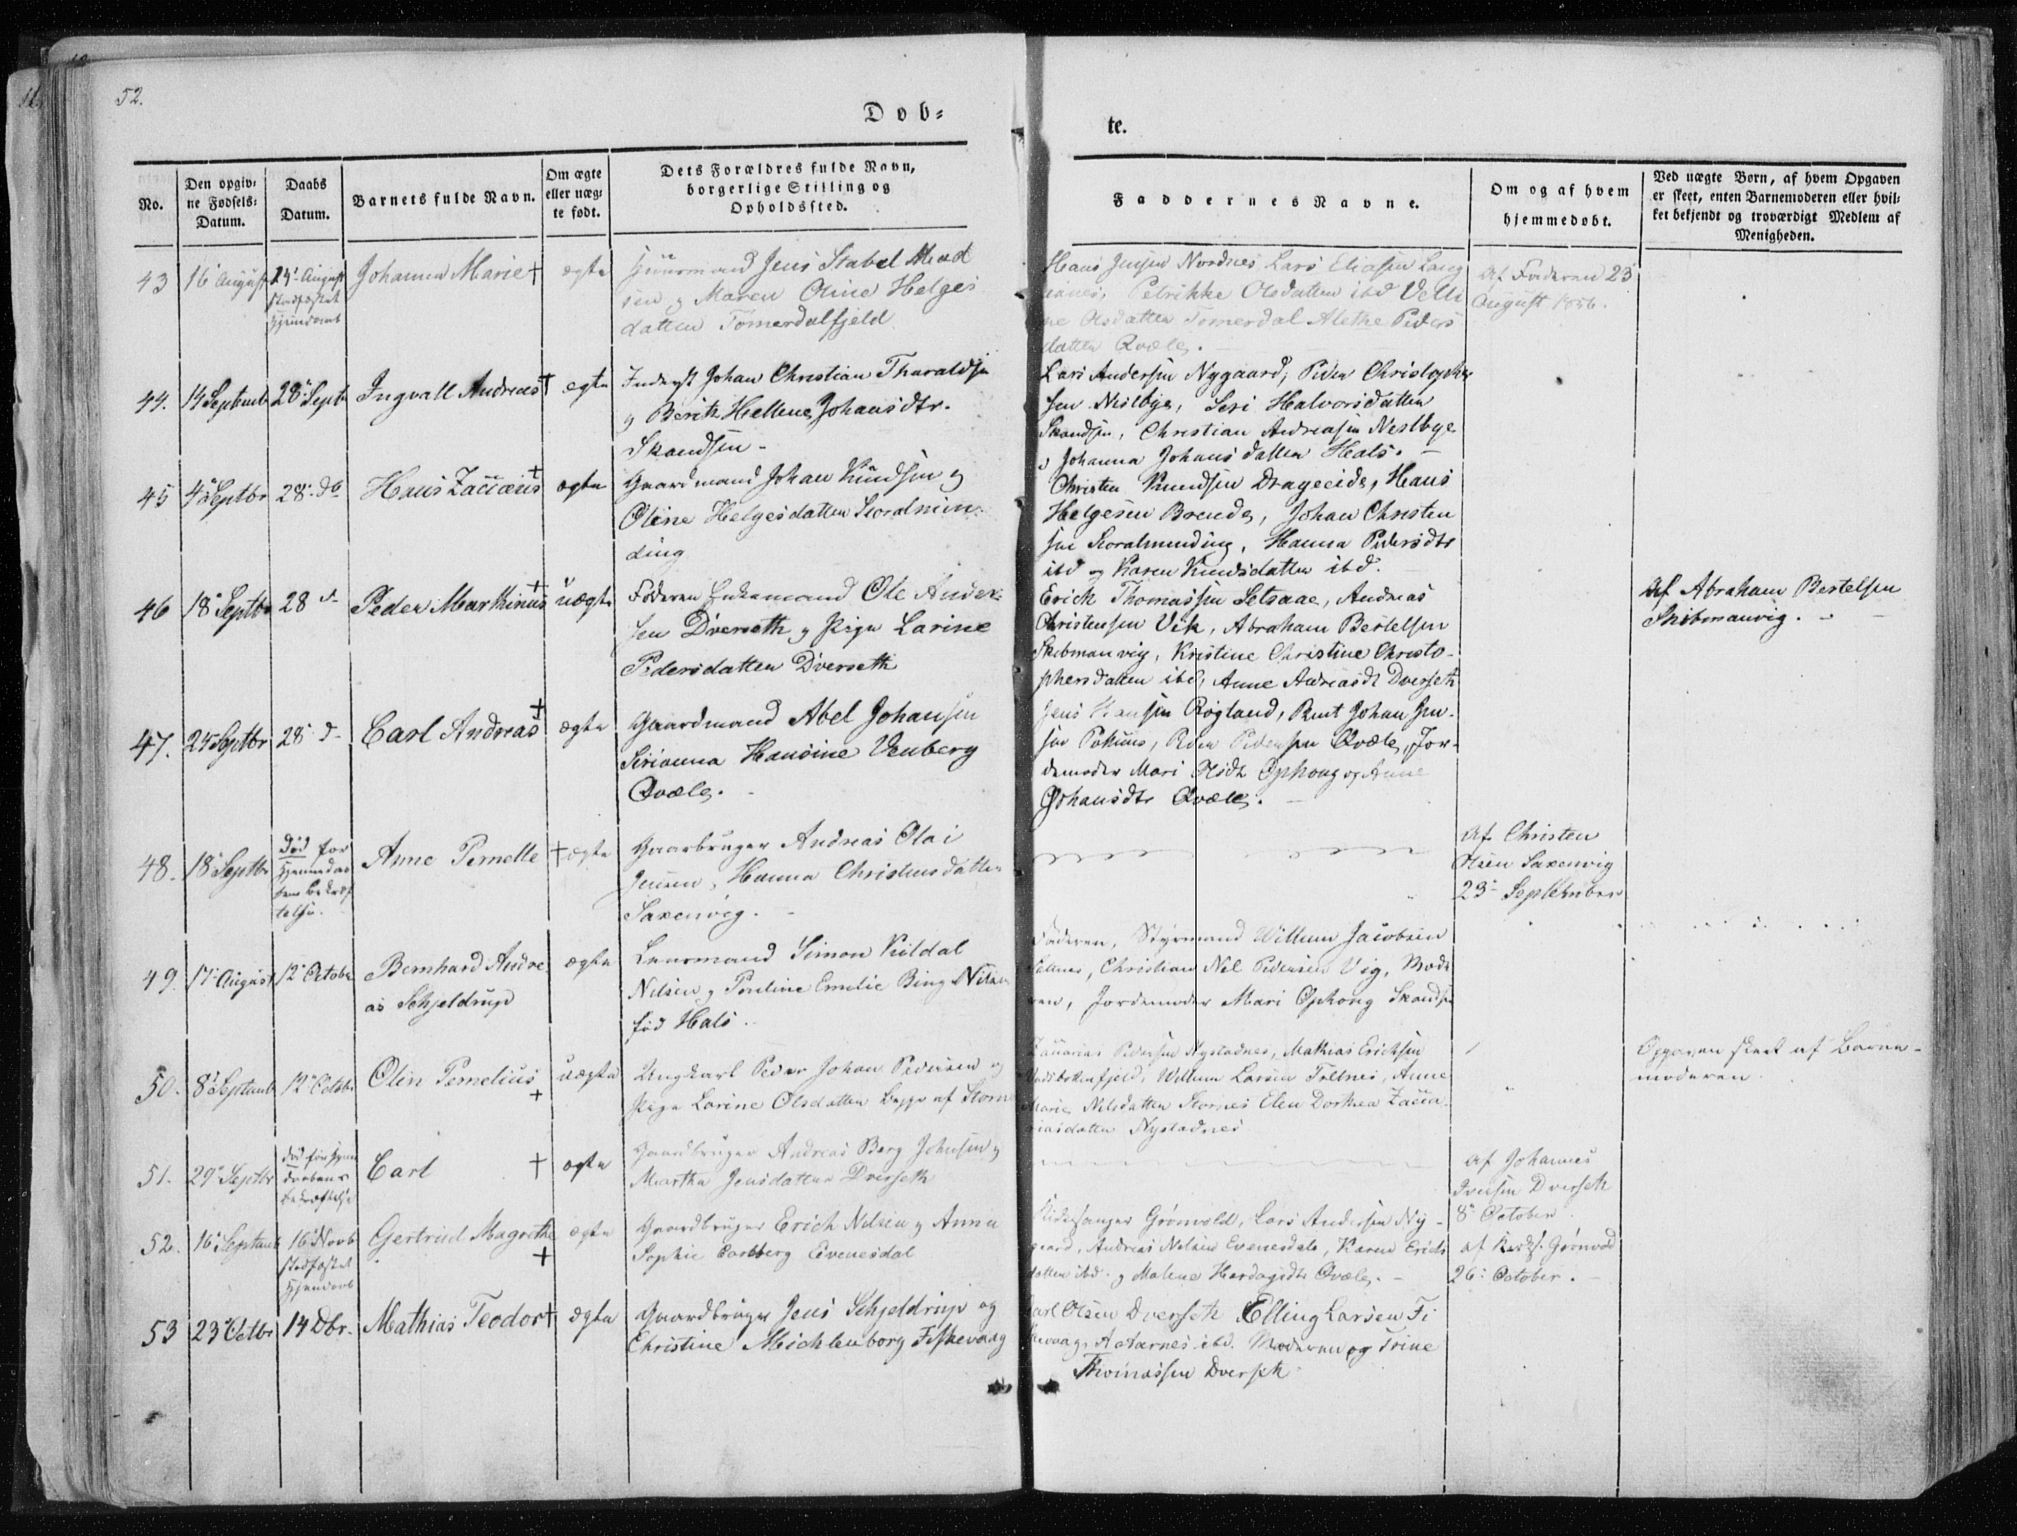 52.
Døb=
te.
No.
Den opgiv=
ne Fødsels=
Datum.
Daabs
Datum.
Barnets fulde Navn.
Om ægte
eller uæg=
te født.
Dets Forældres fulde Navn,
borgerlige Stilling og
Opholdssted.
Faddernes Navne.
Om og af hvem
hjemmedøbt.
Ved uægte Børn, af hvem Opgaven
er skeet, enten Barnemoderen eller hvil=
ket bekjendt og troværdigt Medlem af
Menigheden.
43
16 August
24 August
stadfæstet
Hjemdaab
Johanna Marie +
ægte
Huusmand Jens Stabel Mad
sen og Maren Oline Helges
datten Tømerdalfjeld
Hans Jensen Nordnes, Lars Eliasen Lang
Petrikke Olsdatten ibd
Olsdatten Tømerdal Alethe Peders
datten Qvæle.
Af Faderen 23
August 1856.
44.
14 Septemb
28 Septb
Ingvall Andreas +
ægte
Inderst Johan Christian Tharaldsen
og Berith Hellene Johansdtr.
Skandsen
Lars Andersen Nygaard, Peder Christopher
sen Neslbye, Seri Halvorsdatten
Skandsen, Christian Andreasen Neslbye
og Johanna Johansdatten Hals.
45
4 Septbr
28 do
Hans Zaccæus +
ægte
Gaardmand Johan Knudsen og
Oline Helgesdatten Storalmin=
ding
Christen Knudsen Drageeide, Hans
Helgesen Brende, Johan Christen
sen Storalminding, Hanna Pedersdtr
ibd og Karen Knudsdatten ibd.
46
18 Septbr
28 d
Peder Markinus +
uægte
Faderen Enkemand Ole Ander=
sen Dverseth og Pige Larine
Pedersdatten Dverseth
Erick Thomassen Setsaae, Andreas
Christensen Vik, Abraham Bertelsen
Skibmanvig, Kristine Christine Christo-
phersdatten ibd, Anne Andreasdt Dverseth
Af Abraham Bertelsen
Skibmanvig.
47.
24 Septbr
28 d
Carl Andreas +
ægte
Gaardmand Abel Johansen
Sirianna Hansine Venberg
Qvæle.
Jens Hansen Røgland, Bent Johan Jen-
sen, Peder Pedersen Qvæle, Jor-
demoder Mari Olsdt Ophong og Anne
Johansdtr Qvæle.
48.
18 Septbr
Død før
Hjemmedaa
bens bekræf
telse.
Anne Pernelle +
ægte
Gaarbruger Andreas Olai
Jensen, Hanna Christensdatten
Saxenvig.
Af Christen
Olsen Saxenvig
23 September
49.
17 August
12 October
Bernhard Andre
as Schjeldrup
ægte
Lensmand Simon Kildal
Nilsen og Pouline Emelie Bing Nilsen
fød Hals.
Faderen, Styrmand Willum Jacobsen
Christian Nel Pedersen Vig, Mode
ren, Jordemoder Mari Ophong Skandsen
50.
8 Septemb
12 Octobr
Olin Pernelius +
uægte
Ungkarl Peder Johan Pedersen og
Pige Larine Olsdatten begge af Storn
Zaccarias Pedersen Nystadnes, Mathias Erichsen
Willum Larsen Toltnes, Anne
Marie Nilsdatten Stornes Elen Dorthea Zacca
riasdatten Nystadnes
Opgaven skeet af Barne-
moderen.
51.
29 Septbr
død før Hjem
daabens
bekræftelse
Carl +
ægte
Gaardbruger Andreas Berg Johnsen og
Martha Jensdatten Dverseth
af Johannes
Iversen Dverseth
8 October
52.
16 Septemb
16 Novb
stadfæstet
Hjemdaab
Gertrud Magrethe +
ægte
Gaardbruger Erich Nilsen og Anna
Sophie Carlberg Evenesdal
Kirkesanger Grønvold, Lars Andersen Ny-
gaard, Andreas Nelsen Evenesdale, Karen Erichs
datten ibd. og Malene Hardagsdtr Qvæle.
af Kirks. Grønvold
26 October.
53
23 Octbr
14 Dbr.
Mathias Teodor +
ægte
Gaardbruger Jens Schjeldrup og
Christine Michlenborg Fiskevaag
Carl Olsen Dverseth Elling Larsen Fi
skevaag, ibd. Moderen og Trine
Thomassen Dverseth